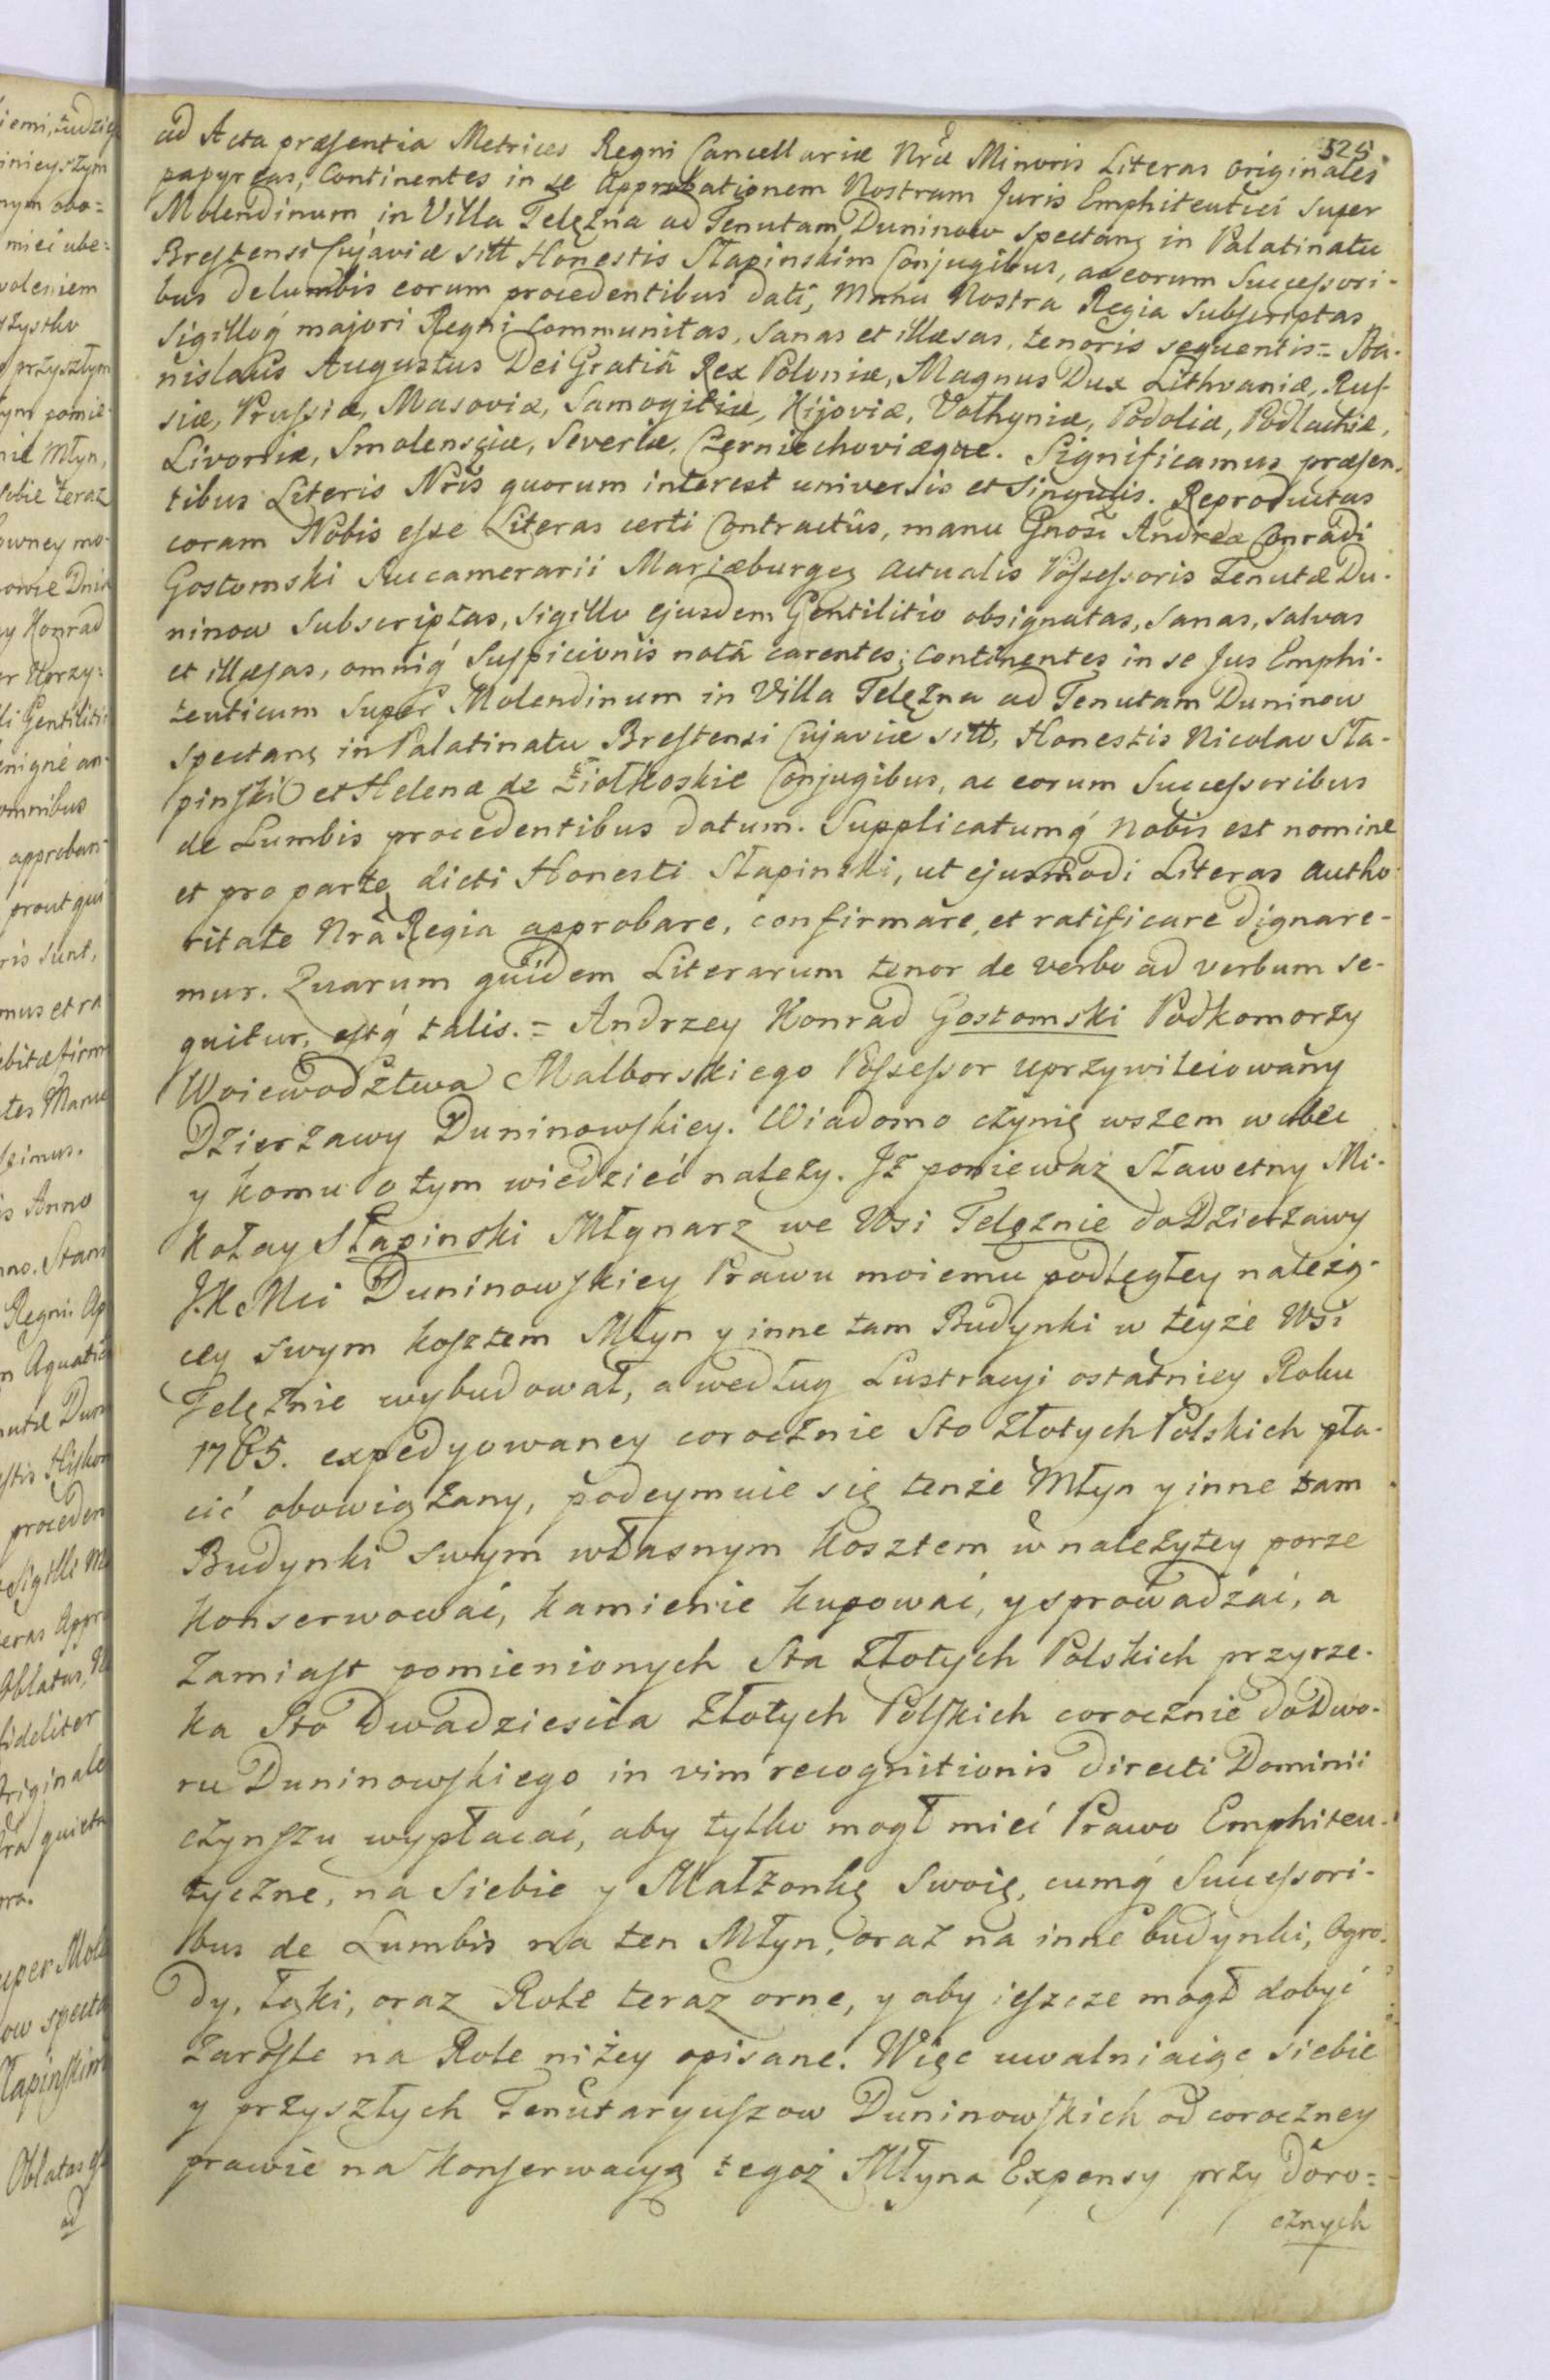 525.
ad Acta præsentia Metrices Regni Cancellariæ Nræ Minoris Literas originales
papyreas, Continentes in se Approbationem Nostram Juris Emphiteutici super
Molendinum in Villa Telężna ad Tenutam Duninow spectanƷ in Palatinatu
Brestensi Cujaviæ sitt Honestis Słapinskim Conjugibus, ac eorum Successori-
bus delumbis eorum procedentibus dati, Manu Nostra Regia Subscriptas
Sigilloq́ majori Regni communitas, sanas et illæsas, tenoris sequentis = Sta-
nislaus Augustus Dei Gratiâ Rex Poloniæ, Magnus Dux Lithvaniæ, Rus-
siæ, Prussiæ, Masoviæ, Samogitiæ, Kijoviæ, Vołhyniæ, Podoliæ, Podlachiæ,
Livoniæ, Smolensciæ, Severiæ, Czerniechoviæque. Significamus præsen-
tibus Literis Nris quorum interest universis et Singulis. Reproductas
coram Nobis esse Literas certi Contractûs, manu Gnosi Andreæ Conradi
Gostomski Succamerarii Mariæburgen actualis Possessoris Tenutæ Du-
ninow subscriptas, sigillo ejusdem Gentilitio obsignatas, sanas, salvas
et illæsas, omniq́ Suspicionis notâ carentes; continentes in se Jus Emphi-
teuticum Super Molendinum in Villa Telężna ad Tenutam Duninow
spectanƷ in Palatinatu Brestensi Cujaviæ sitt, Honestis Nicolao Sła-
pinski et Helenæ de Ziołkoskie Conjugibus, ac eorum Successoribus
de Lumbis procedentibus datum. Supplicatumq́ nobis est nomine
et pro parte dicti Honesti Słapinski, ut ejusmodi Literas autho-
ritate Nrâ Regia approbare, confirmare, et ratificare dignare-
mur. Quarum quidem Literarum tenor de verbo ad verbum se-
quitur, estq́ talis. = Andrzey Konrad Gostomski Podkomorzy
Woiewodztwa Malborskiego Possessor uprzywileiowany
Dzierzawy Duninowskiey. Wiadomo czynię wszem wobec
y komu o tym wiedzieć należy. Jż ponieważ Sławetny Mi-
kołay Słapinski Młynarz we Wsi Telężnie do Dzierzawy
J.K Mci Duninowskiey Prawu moiemu podległey należą-
cey swym kosztem Młyn y inne tam Budynki w teyże Wsi
Telężnie wybudował, a według Lustracyi ostatniey Roku
1765. expedyowaney corocznie Sto Złotych Polskich pła-
cić obowiązany, podeymuie się tenże Młyn y inne tam
Budynki swym własnym kosztem w należytey porze
konserwować, kamienie kupować, y sprowadzać, a
zamiast pomienionych Sta Złotych Polskich przyrze-
ka Sto Dwadziescia Złotych Polskich corocznie do Dwo-
ru Duninowskiego in vim recognitionis directi Dominii
czynszu wypłacać, aby tylko mogł mieć Prawo Emphiteu-
tyczne, na siebie y Małżonkę swoię, cumq́ Successori-
bus de Lumbis na ten Młyn, oraz na inne budynki, Ogro-
dy, Łąki, oraz Role teraz orne, y aby ieszcze mogł dobyć
Zarosłe na Role niżey opisane. Więc uwalniaiąc siebie
y przyszłych Tenutaryuszow Duninowskich od coroczney
prawie na konserwacyą tegoż Młyna Expensy przy doro=
cznych